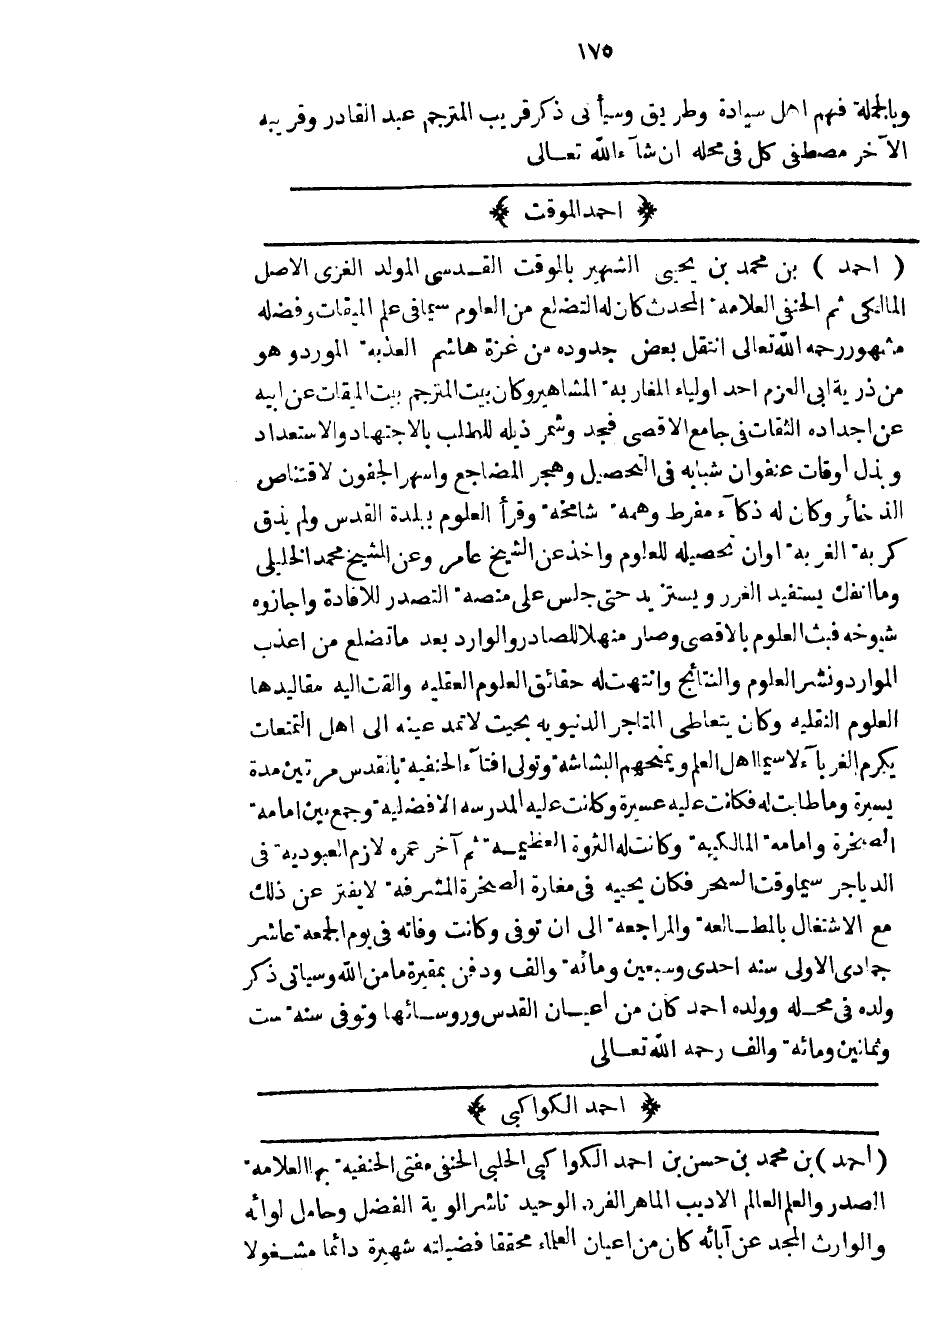 ١٧٥
وبالجملة فهم اهل سيادة وطريق وسيأتى ذكر قريب المترجم عبد القادر وقريبه
الآخر مصطفى كل فى محله ان شآء الله تعـالى
﴿ احمد الموقت ﴾
( احمد ) بن محمد بن يحيى الشهير بالموقت القـدسى المولد الغزى الاصل
المالكى ثم الحنفى العلامة المحدث كان له التضلع من العلوم سيما فى علم الميقات وفضله
مشهور رحمه الله تعالى انتقل بعض جدوده من غزة هاشم العذبة المورد وهو
من ذرية ابى العزم احد اولياء المغاربة المشاهير وكان بيت المترجم بيت الميقات عن ابيه
عن اجداده الثقات فى جامع الاقصى فجد وشمر ذيله للطلب بالاجتهاد والاستعداد
وبذل أوقات عنفوان شبابه فى التحصيل وهجر المضاجع واسهر الجفون لاقتناص
الذخائر وكان له ذكآء مفرط وهمة شامخة وقرأ العلوم ببلدة القدس ولم يذق
كربة الغربة اوان تحصيله للعلوم واخذ عن الشيخ عامر وعن الشيخ محمد الخليلى
وما انفك يستفيد الغرر ويستزيد حتى جلس على منصة التصدر للافادة واجازوه
شيوخه فبث العلوم بالاقصى وصار منهلا للصادر والوارد بعد ما تضلع من اعذب
الموارد ونشر العلوم والنتائج وانتهت له حقائق العلوم العقليه والقت اليه مقاليدها
العلوم النقليه وكان يتعاطى المتاجر الدنيويه بحيث لا تمد عينه الى اهل التمتعات
يكرم الغربآء لا سيما اهل العلم ويمنحهم البشاشة وتولى افتآء الحنفية بالقدس مرتين مدة
يسيرة وما طابت له فكانت عليه عسيرة وكانت عليه المدرسه الافضلية وجمع بين امامة
الصخرة وامامة المالكية وكانت له الثروة العظيمـة ثم آخر عمره لازم العبودية فى
الدياجر سيما وقت السحر فكان يحييه فى مغارة الصخرة المشرفة لا يفتر عن ذلك
مع الاشتغال بالمطـالعة والمراجعة الى ان توفى وكانت وفاته فى يوم الجمعة عاشر
جمادى الاولى سنه احدى وسبعين ومائة والف ودفن بمقبرة مامن الله وسياتى ذكر
ولده فى محـله وولده احمد كان من أعيـان القدس وروسـائها وتوفى سنة ست
وثمانين ومائة والف رحمه الله تعـالى
﴿ احمد الكواكبى ﴾
( أحمد ) بن محمد بن حسن بن احمد الكواكبى الحلبى الحنفى مفتى الحنفية بها العلامة
الصدر والعلم العالم الاديب الماهر الفرد الوحيد ناشر الوية الفضل وحامل لوائه
والوارث المجد عن آبائه كان من اعيان العلماء محققا فضيلته شهيرة دائما مشـغولا